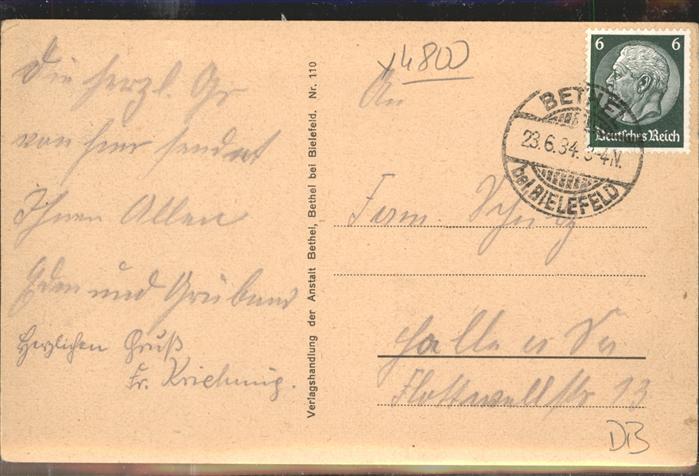 Die herzl. Gr
von hier sendet
Ihnen Allen
und
Herzlichen Gruß
Fr.
Verlagshandlung der Anstalt Bethel, Bethel bei Bielefeld. Nr. 110
4800
An
6 6
Deutsches Reich
BETHEL
23.6.34. 3-4N.
bei BIELEFELD
Fam. Schulz
Halle a. S.
Flottwellstr 13
DB